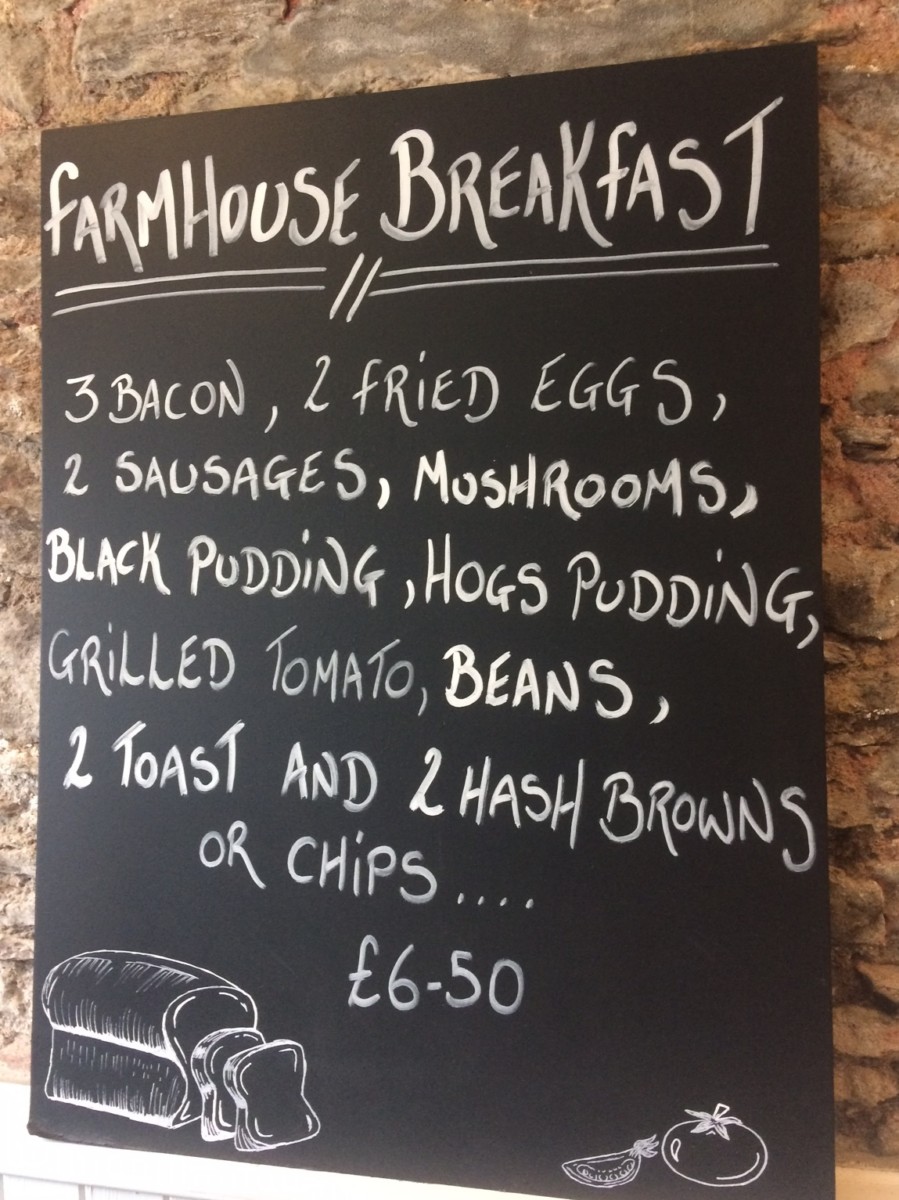 FARMHOUSE BREAKFAST
3 BACON, 2 FRiED EGGS,
2 SAUSAGES, MUSHROOMS,
BLACK PUDDiNG, HOGS PUDDiNG,
GRiLLED TOMATO, BEANS,
2 TOAST AND 2 HASH BROWNS
OR CHiPS....
£6-50